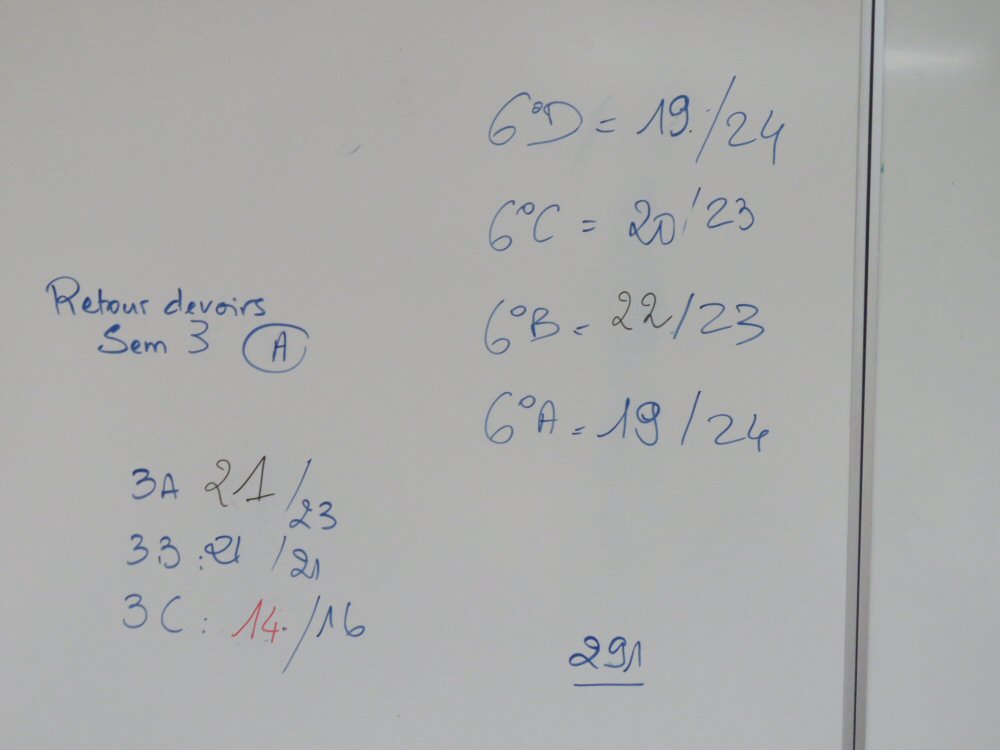 Retour devoirs
Sem 3 A
3A 21/23
3B : 21/21
3C : 14/16
6°D = 19/24
6°C = 20/23
6°B = 22/23
6°A = 19/24
291